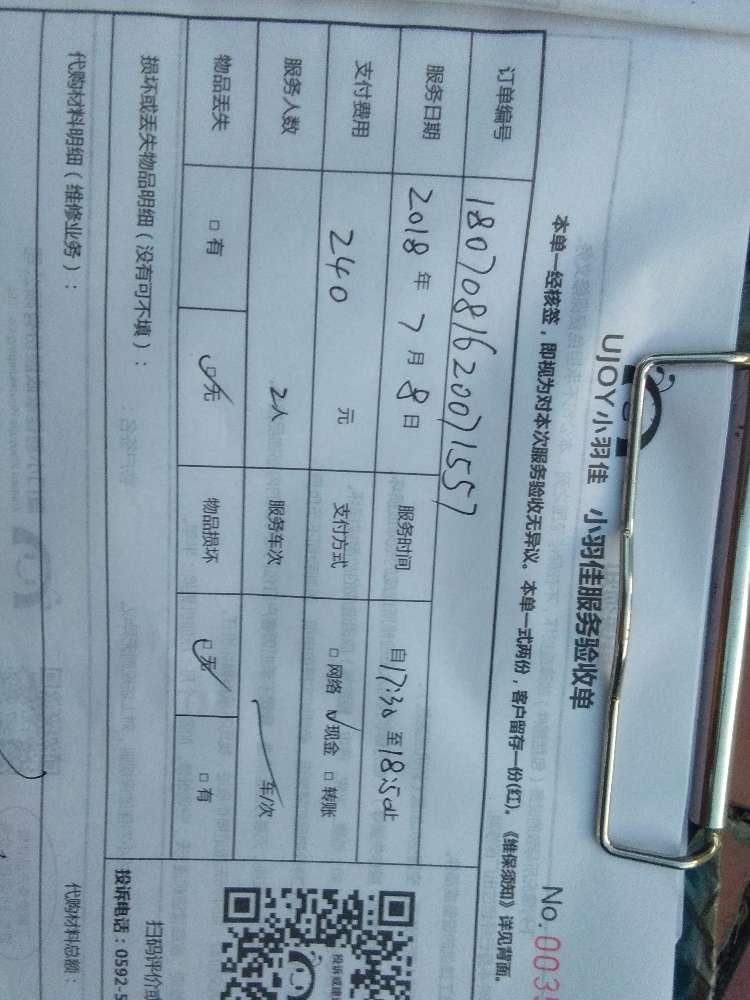 UJOY小羽佳 小羽佳服务验收单
No. 003
本单一经核签，即视为对本次服务验收无异议。本单一式两份，客户留存一份(红)。《维保须知》详见背面。
订单编号 1807081620071557
服务日期 2018 年 7 月 8 日 服务时间 自17:30 至18:50止
支付费用 240 元 支付方式 □ 网络 ☑现金 □ 转账
服务人数 2人 服务车次 车/次
物品丢失 □ 有 ☑无 物品损坏 ☑无 □ 有
损坏或丢失物品明细（没有可不填）：
扫码评价
投诉电话：0592-5
代购材料明细（维修业务）： 代购材料总额：